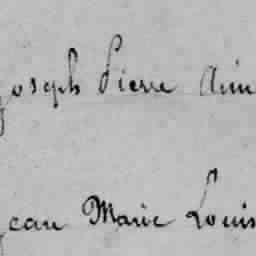 Joseph Pierre Aim
Jean Marie Louis